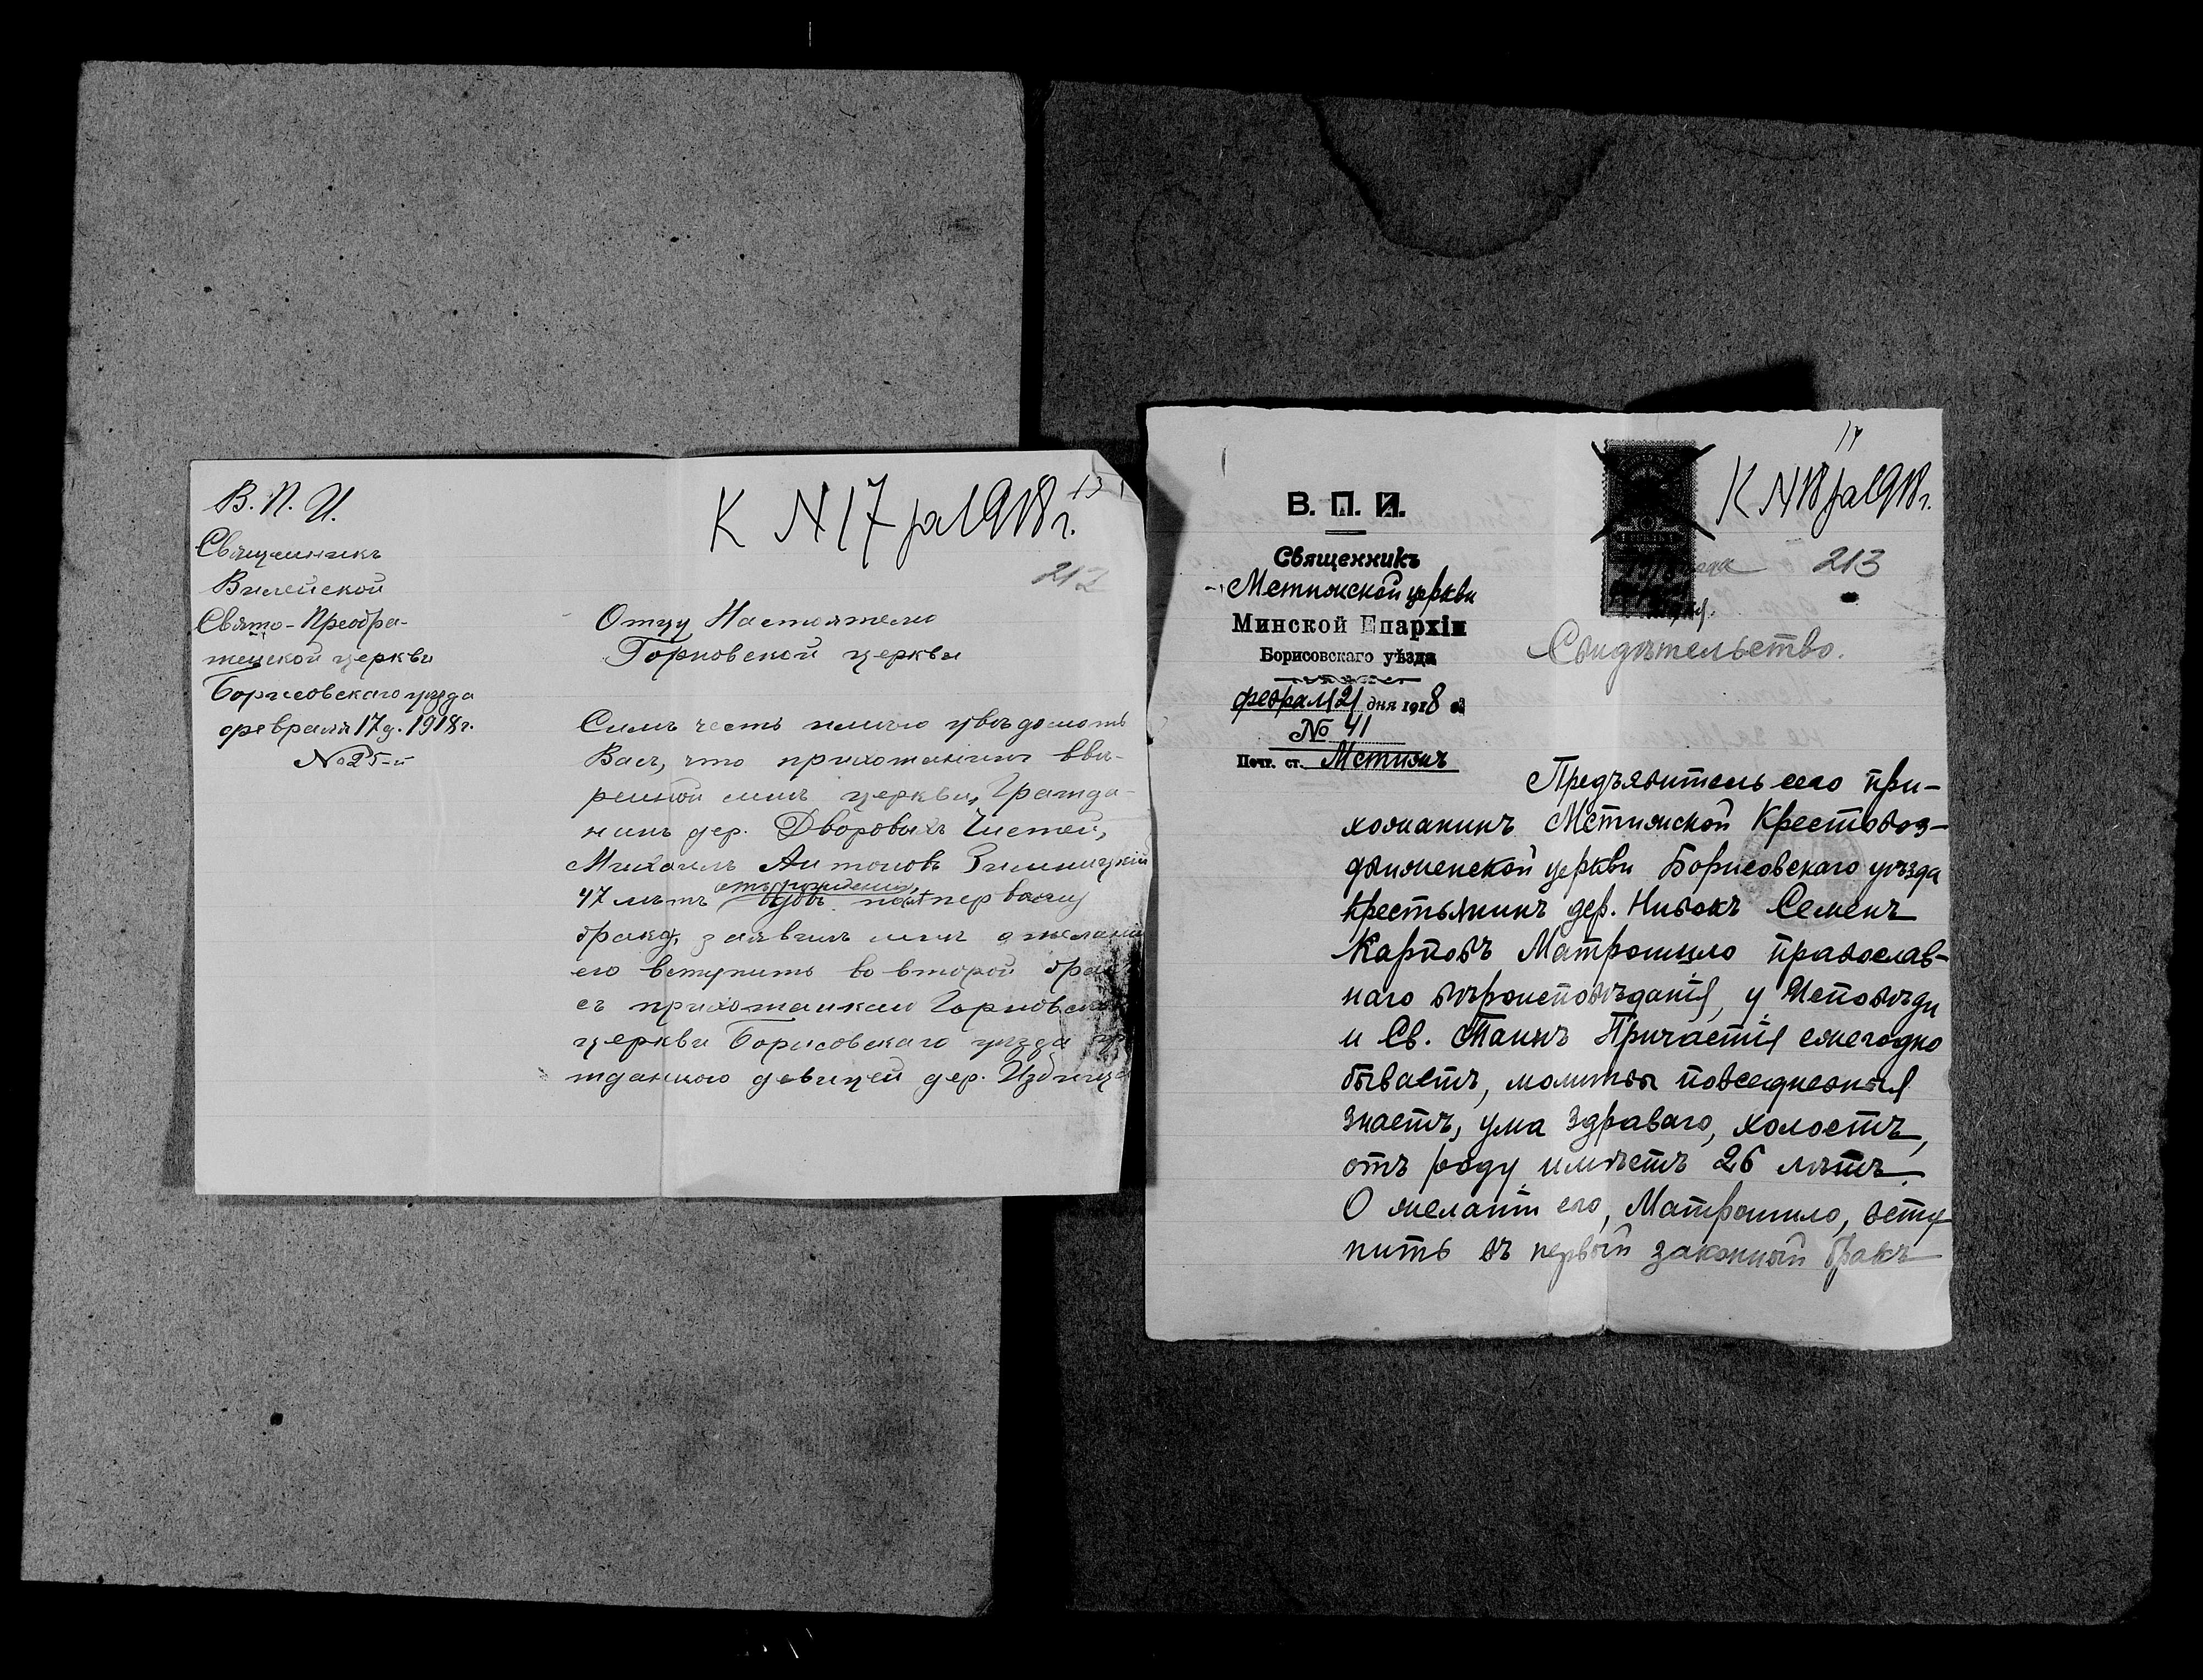 В. П. И.
Священникъ
Вилейской
Свято-Преобра-
женской церкви
Борисовскаго уѣзда
февраля 17 д. 1918 г.
№ 25-й
К N 17 за 1918 г.
13
212
Отцу Настоятелю
Горновской церкви
Симъ честь имѣю увѣдомить
Васъ, что прихожанинъ ввѣ-
ренной мнѣ церкви, Гражда-
нинъ дер. Дворовыхъ Чистей,
Михаилъ Антоновъ Зимницкій
отъ рожденія,
47 лѣтъ вдовъ по первому
браку, заявилъ мнѣ о желаніи
его вступить во второй бракъ
съ прихожанкою Горновской
церкви Борисовскаго уѣзда гр
жданкою дѣвицей дер. Избище
В. П. И.
Священникъ
Мстижской церкви
Минской Епархіи
Борисовскаго уѣзда
февраля 21 дня 1918
№ 41
Почт. ст. Мстижъ
14
К N 18 за 1918 г.
213
Свидѣтельство.
Предъявитель сего при-
хожанинъ Мстижской Крестовоз-
движенской церкви Борисовскаго уѣзда
крестьянинъ дер. Нивокъ Семенъ
Карповъ Матрошило православ-
наго вѣроисповѣданія, у Исповѣди
и Св. Таинъ Причастія ежегодно
бываетъ, молитвы повседневныя
знаетъ, ума здраваго, холостъ,
отъ роду имѣетъ 26 лѣтъ.
О желаніи его, Матрошило, всту
пить въ первый законный бракъ